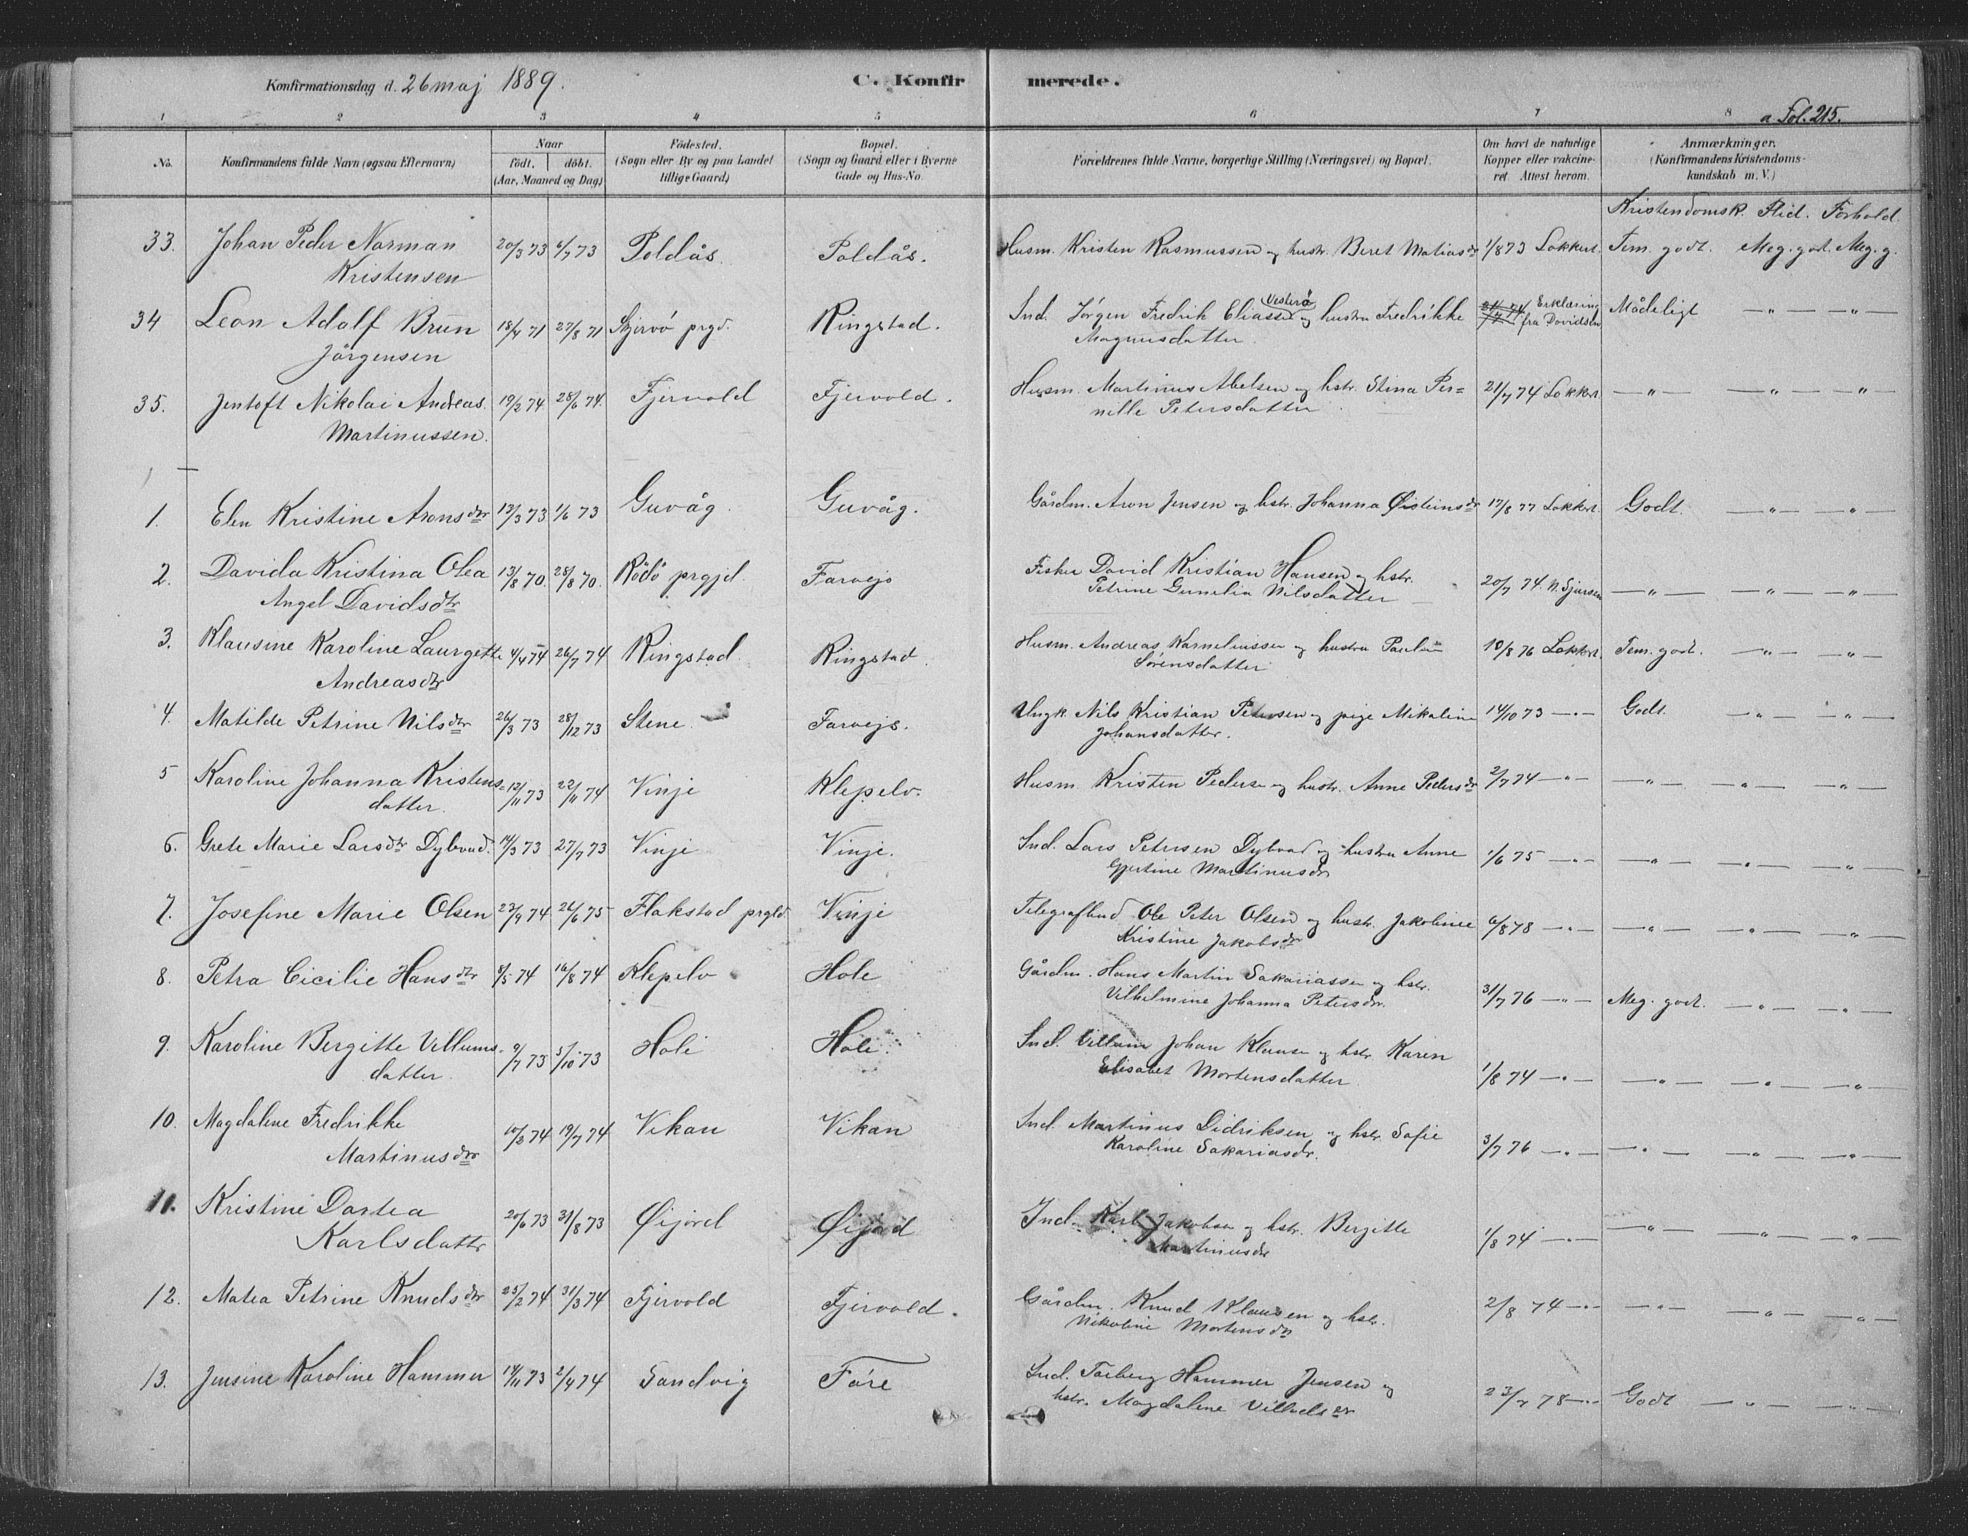 Konfirmationsdag d. 26 maj 1889.
C. Konfirmerede.
a Fol. 215.
1 2 3 4 5 6 7 8
No. Konfirmandens fulde Navn (ogsaa Efternavn) Naar födt. döbt. (Aar, Maaned og Dag) Födested. (Sogn eller By og paa Landet tillige Gaard) Bopæl. (Sogn og Gaard eller i Byerne Gade og Hus-No. Forældrenes fulde Navne, borgerlige Stilling (Næringsvei) og Bopæl. Om havt de naturlige Kopper eller vakcineret. Attest herom. Anmærkninger. (Konfirmandens Kristendomskundskab m. V.)
Kristendomsk. Flid. Forhold.
33. Johan Peder Norman 20/3 73 6/7 73 Poldås. Poldås. Husm. Kristen Rasmussen og hustr. Beret Matiasdr 1/8 73 Lokkert. Tem. godt. Meg. godt. Meg. g.
Kristensen
34 Leon Adolf Brun 18/4 71 27/8 71 Skjervö prgd. Ringstad. Ind. Jörgen Fredrik Eliassen Vesterö og hustru Fredrikke 21/7 74 Erklæring fra Davidsen Mådeligt — " — — " —
Jörgensen Magnusdatter.
35. Jentoft Nikolai Andreas 19/2 74 28/6 74. Fjervold Fjervold. Husm. Martinus Abelsen og hstr. Stina Per- 21/7 74 Lokkert. — " — — " — — " —
Martinussen. nille Petersdatter
1. Elen Kristine Aronsdtr 12/3 73 1/6 73 Guvåg. Guvåg. Gårdm. Aron Jensen og hstr. Johanna Øisteinsdr 17/8 77 Lokkert. Godt. — " — — " —
2. Davida Kristina Olea 13/8 70. 28/8 70. Rödö prgjd. Farvejs Fisker David Kristian Hansen og hstr. 20/7 74. N. Sjursen — " — — " — — " —
Angel Davidsdtr Petrine Gunelia Nilsdatter
3. Klausine Karoline Laurgette 4/4 74 26/7 74 Ringstad. Ringstad. Husm. Andreas Korneliussen og hustru Paulin 10/8 76 Lokkert. Tem. godt. — " — — " —
Andreasdtr Sörensdatter
4. Matilde Petrine Nilsdtr 26/3 73 28/12 73 Stene. Farvejs. Ungk. Nils Kristian Petersen og pige Mikaline 14/10 73 — " — Godt. — " — — " —
Johansdatter.
5 Karoline Johanna Kristens- 12/11 73 22/11 74 Vinje Klepelv. Husm. Kristen Pedersen og hustr. Anne Pedersdr 2/7 74 — " — — " — — " — — " —
datter.
6. Grete Marie Larsdtr Dybvad. 14/3 73 27/7 73 Vinje Vinje. Ind. Lars Petersen Dybvad og hustru Anne 1/6 75 — " — — " — — " — — " —
Gjertine Martinusdr
7. Josefine Marie Olsen 23/9 74 26/6 75 Flakstad prgld. Vinje Telegrafbud Ole Peter Olsen og hustr. Jakobine 6/8 78 — " — — " — — " — — " —
Kristine Jakobsdr
8. Petra Cicilie Hansdtr 8/5 74 16/8 74 Klepelv Hole Gårdm. Hans Martin Sakariassen og hstr. 31/7 76 — " — Meg. godt. — " — — " —
Vilhelmine Johanna Petersdr.
9. Karoline Bergitte Villums- 9/7 73 5/10 73 Hole Hole. Ind. Villum Johan Klausen og hstr. Karen 1/8 74 — " — — " — — " — — " —
datter Elisabet Mortensdatter.
10. Magdalene Fredrikke 10/2 74 19/7 74 Vikan Vikan Ind. Martinus Didriksen og hstr. Sofie 3/7 76 — " — — " — — " — — " —
Martinusdtr Karoline Sakariasdr.
11. Kristine Dortea 20/6 73 31/8 73 Øijord Øijord Ind. Karl Jakobsen og hstr. Bergitte 1/8 74 — " — — " — — " — — " —
Karlsdattr Martinusdr
12. Matea Petrine Knudsdtr 25/2 74 31/3 74 Fjervold Fjervold. Gårdm. Knud Klausen og hstr. 2/8 74 — " — — " — — " — — " —
Nikoline Mortensdr
13. Jensine Karoline Hammer 14/11 73 2/4 74 Sandvig Føre Ind. Torberg Hammer Jensen og 23/7 78 — " — Godt — " — — " —
hstr. Magdalene Villadsdr